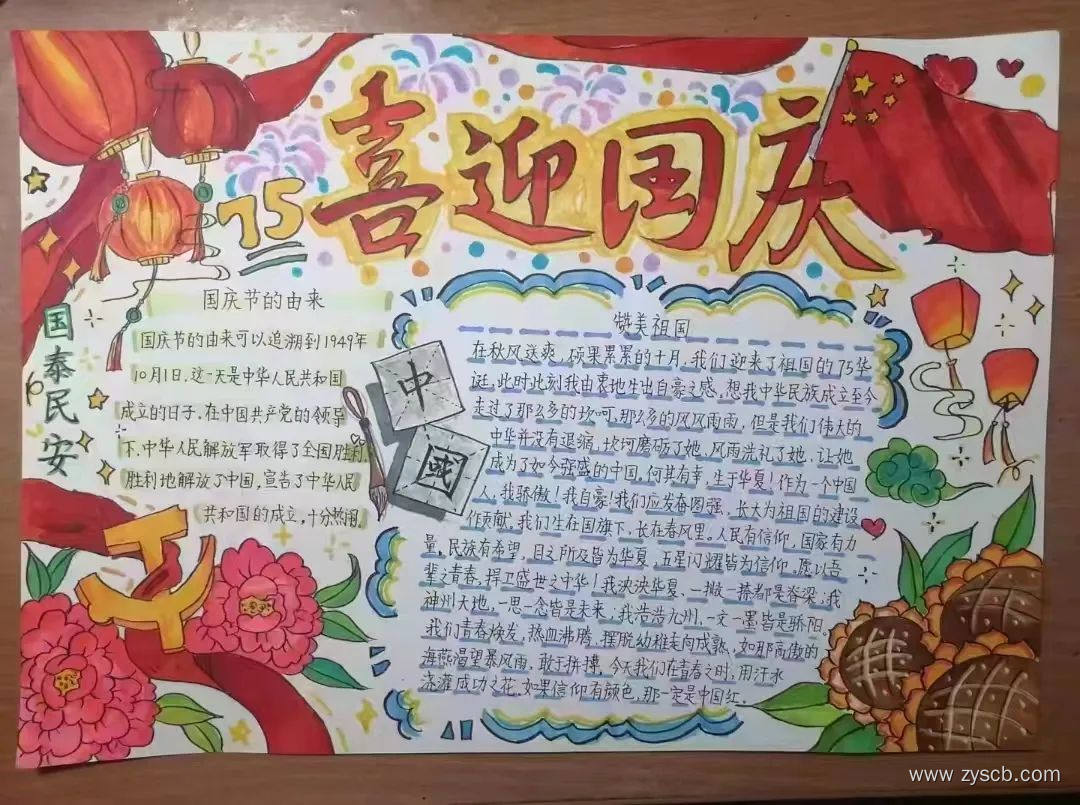 喜迎国庆
75
国泰民安
国庆节的由来
国庆节的由来可以追溯到1949年
10月1日,这一天是中华人民共和国
成立的日子,在中国共产党的领导
下,中华人民解放军取得了全国胜利,
胜利地解放了中国,宣告了中华人民
共和国的成立,十分热闹。
中
國
赞美祖国
在秋风送爽,硕果累累的十月,我们迎来了祖国的75华
诞,此时此刻我由衷地生出自豪之感,想我中华民族成立至今
走过了那么多的坎坷,那么多的风风雨雨,但是我们伟大的
中华并没有退缩,坎坷磨砺了她,风雨洗礼了她,让她
成为了如今强盛的中国,何其有幸,生于华夏!作为一个中国
人,我骄傲!我自豪!我们应发奋图强,长大为祖国的建设
作贡献,我们生在国旗下,长在春风里。人民有信仰,国家有力
量,民族有希望,目之所及皆为华夏,五星闪耀皆为信仰。愿以吾
辈之青春,捍卫盛世之中华!我泱泱华夏,一撇一捺都是脊梁;我
神州大地,一思一念皆是未来;我浩浩九州,一文一墨皆是骄阳。
我们青春焕发,热血沸腾,摆脱幼稚走向成熟,如那高傲的
海燕渴望暴风雨,敢于拼搏,今天我们在青春之时,用汗水
浇灌成功之花,如果信仰有颜色,那一定是中国红。
www.zyscb.com